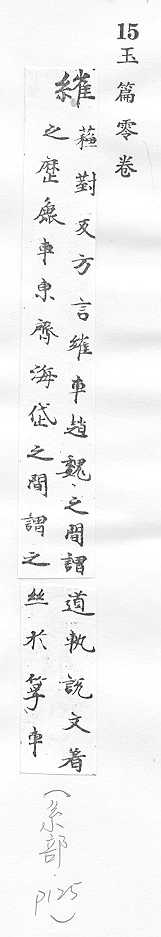 15 玉篇零卷
繀
蘓對反方言繀車趙魏之間謂
之歷鹿車東齊海岱之間謂之
道軌說文著
絲於筟車
(糸部 p125)